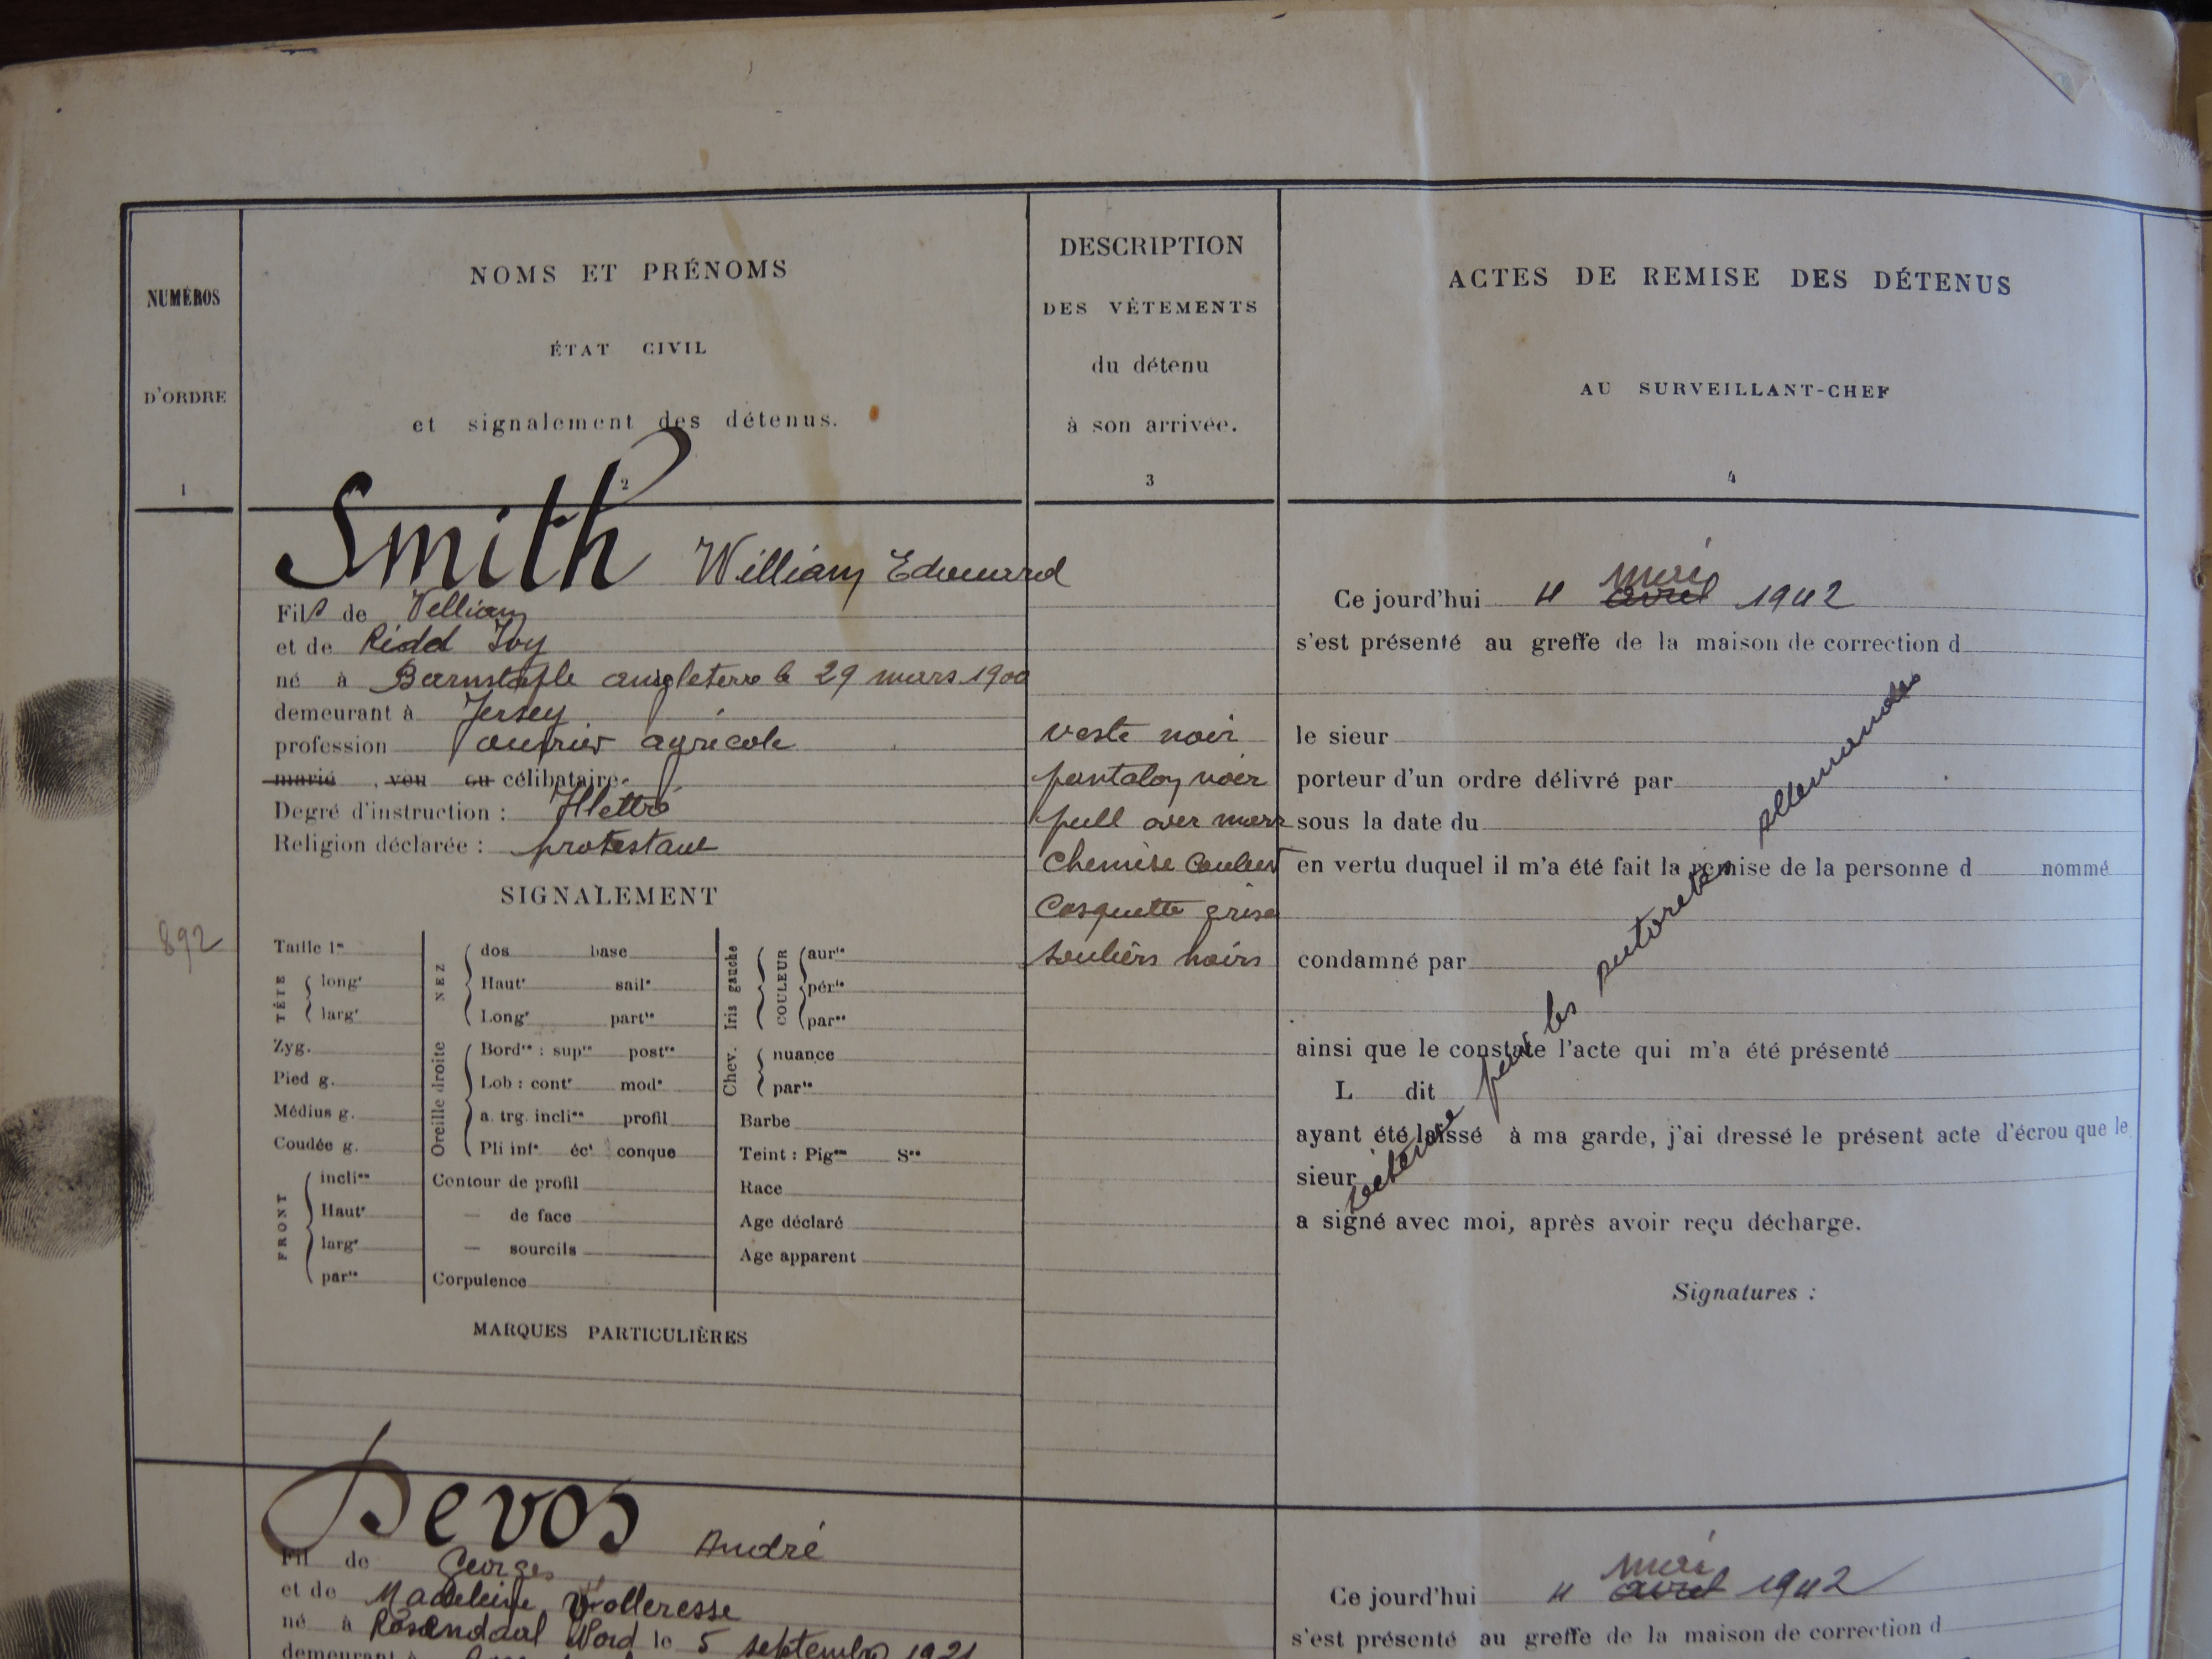 NUMÉROS
D'ORDRE
1
NOMS ET PRÉNOMS
ÉTAT CIVIL
et signalement des détenus.
2
DESCRIPTION
DES VÊTEMENTS
du détenu
à son arrivée.
3
ACTES DE REMISE DES DÉTENUS
AU SURVEILLANT-CHEF
4
892
Smith William Edouard
Fils de William
et de Ridd Ivy
né à Barnstaple angleterre le 29 mars 1900
demeurant à Jersey
profession ouvrier agricole
marié, veu ou célibataire.
Degré d'instruction : Illettré
Religion déclarée : protestant
SIGNALEMENT
Taille 1m
TÊTE
longr
largr
Zyg.
Pied g.
Médius g.
Coudée g.
FRONT
inclion
Hautr
largr
partés
NEZ
dos base
Hautr saile
Longr partés
Oreille droite
Bordre : supre postre
Lob : contr mode
a. trg. inclion profil
Pli infe éct conque
Contour de profil
— de face
— sourcils
Corpulence
Iris gauche
COULEUR
aurle
périe
partés
Chev.
nuance
partés
Barbe
Teint : Pigre Sre
Race
Age déclaré
Age apparent
MARQUES PARTICULIÈRES
veste noir
pantalon noir
pull over marr
chemise couleur
Casquette grise
souliers noirs
Ce jourd'hui 4 avril mai 1942
s'est présenté au greffe de la maison de correction d
le sieur
porteur d'un ordre délivré par
sous la date du
en vertu duquel il m'a été fait la remise de la personne d nommé
condamné par
ainsi que le constate l'acte qui m'a été présenté
L dit
ayant été laissé à ma garde, j'ai dressé le présent acte d'écrou que le
sieur
a signé avec moi, après avoir reçu décharge.
Signatures :
détenue par les autorités allemandes
Devos André
Fil de Georges
et de Madeleine
né à Rosendaal Nord le 5 septembre 1921
demeurant à
Ce jourd'hui 4 avril mai 1942
s'est présenté au greffe de la maison de correction d